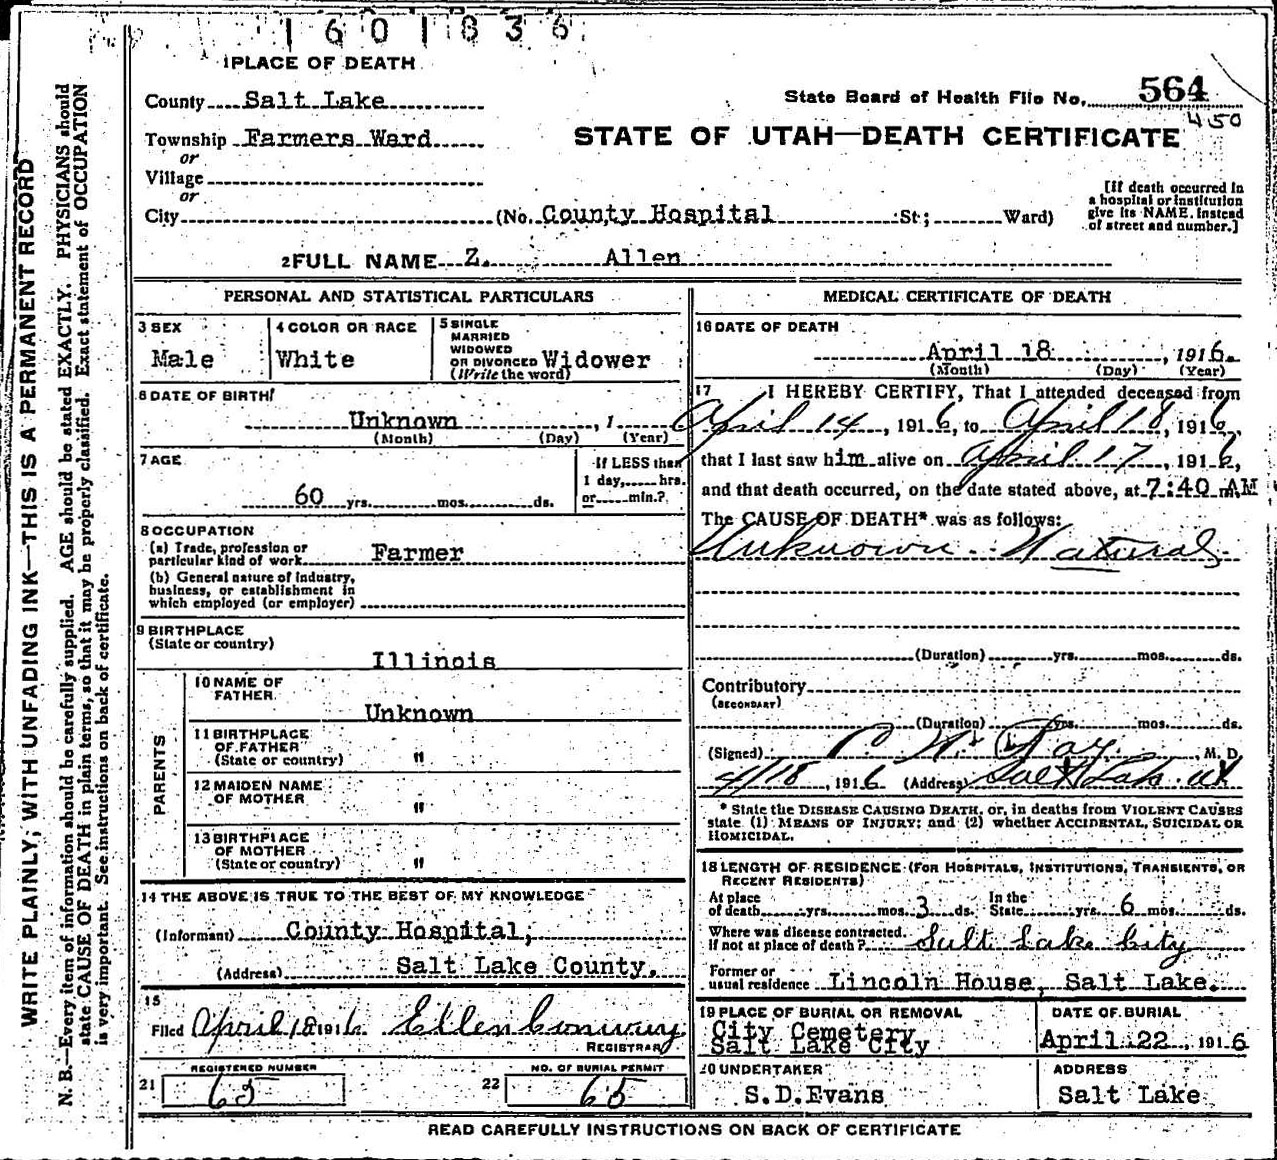 1601836
1 PLACE OF DEATH
County Salt Lake
State Board of Health File No. 564
450
Township Farmers Ward
STATE OF UTAH—DEATH CERTIFICATE
or
Village
or
City (No. County Hospital St; Ward)
[If death occurred in
a hospital or institution
give its NAME instead
of street and number.]
2 FULL NAME Z. Allen
PERSONAL AND STATISTICAL PARTICULARS
3 SEX
Male
4 COLOR OR RACE
White
5 SINGLE
MARRIED
WIDOWED
OR DIVORCED Widower
(Write the word)
6 DATE OF BIRTH
Unknown , 1
(Month) (Day) (Year)
7 AGE
60 yrs. mos. ds.
If LESS than
1 day, hrs.
or min.?
8 OCCUPATION
(a) Trade, profession or
particular kind of work Farmer
(b) General nature of industry,
business, or establishment in
which employed (or employer)
9 BIRTHPLACE
(State or country)
Illinois
PARENTS
10 NAME OF
FATHER
Unknown
11 BIRTHPLACE
OF FATHER
(State or country) "
12 MAIDEN NAME
OF MOTHER "
13 BIRTHPLACE
OF MOTHER
(State or country) "
14 THE ABOVE IS TRUE TO THE BEST OF MY KNOWLEDGE
(Informant) County Hospital,
(Address) Salt Lake County.
15
Filed April 18 1916 Ellen Conway
REGISTRAR
21 REGISTERED NUMBER
65
22 NO. OF BURIAL PERMIT
65
MEDICAL CERTIFICATE OF DEATH
16 DATE OF DEATH
April 18 , 1916.
(Month) (Day) (Year)
17 I HEREBY CERTIFY, That I attended deceased from
April 14, 1916, to April 18, 1916,
that I last saw him alive on April 17, 1916,
and that death occurred, on the date stated above, at 7:40 m. AM
The CAUSE OF DEATH* was as follows:
Unknown. Natural
(Duration) yrs. mos. ds.
Contributory
(SECONDARY)
(Duration) yrs. mos. ds.
(Signed) Ray, M. D.
4/18, 1916 (Address) Salt Lake Ut
* State the DISEASE CAUSING DEATH, or, in deaths from VIOLENT CAUSES
state (1) MEANS OF INJURY; and (2) whether ACCIDENTAL, SUICIDAL OR
HOMICIDAL.
18 LENGTH OF RESIDENCE (FOR HOSPITALS, INSTITUTIONS, TRANSIENTS, OR
RECENT RESIDENTS)
At place
of death yrs. mos. 3 ds. In the
State yrs. 6 mos. ds.
Where was disease contracted,
If not at place of death? Salt Lake City
Former or
usual residence Lincoln House, Salt Lake.
19 PLACE OF BURIAL OR REMOVAL
City Cemetery
Salt Lake City
DATE OF BURIAL
April 22, 1916
20 UNDERTAKER
S.D.Evans
ADDRESS
Salt Lake
READ CAREFULLY INSTRUCTIONS ON BACK OF CERTIFICATE
WRITE PLAINLY, WITH UNFADING INK—THIS IS A PERMANENT RECORD
N. B.—Every item of information should be carefully supplied. AGE should be stated EXACTLY. PHYSICIANS should
state CAUSE OF DEATH in plain terms, so that it may be properly classified. Exact statement of OCCUPATION
is very important. See instructions on back of certificate.